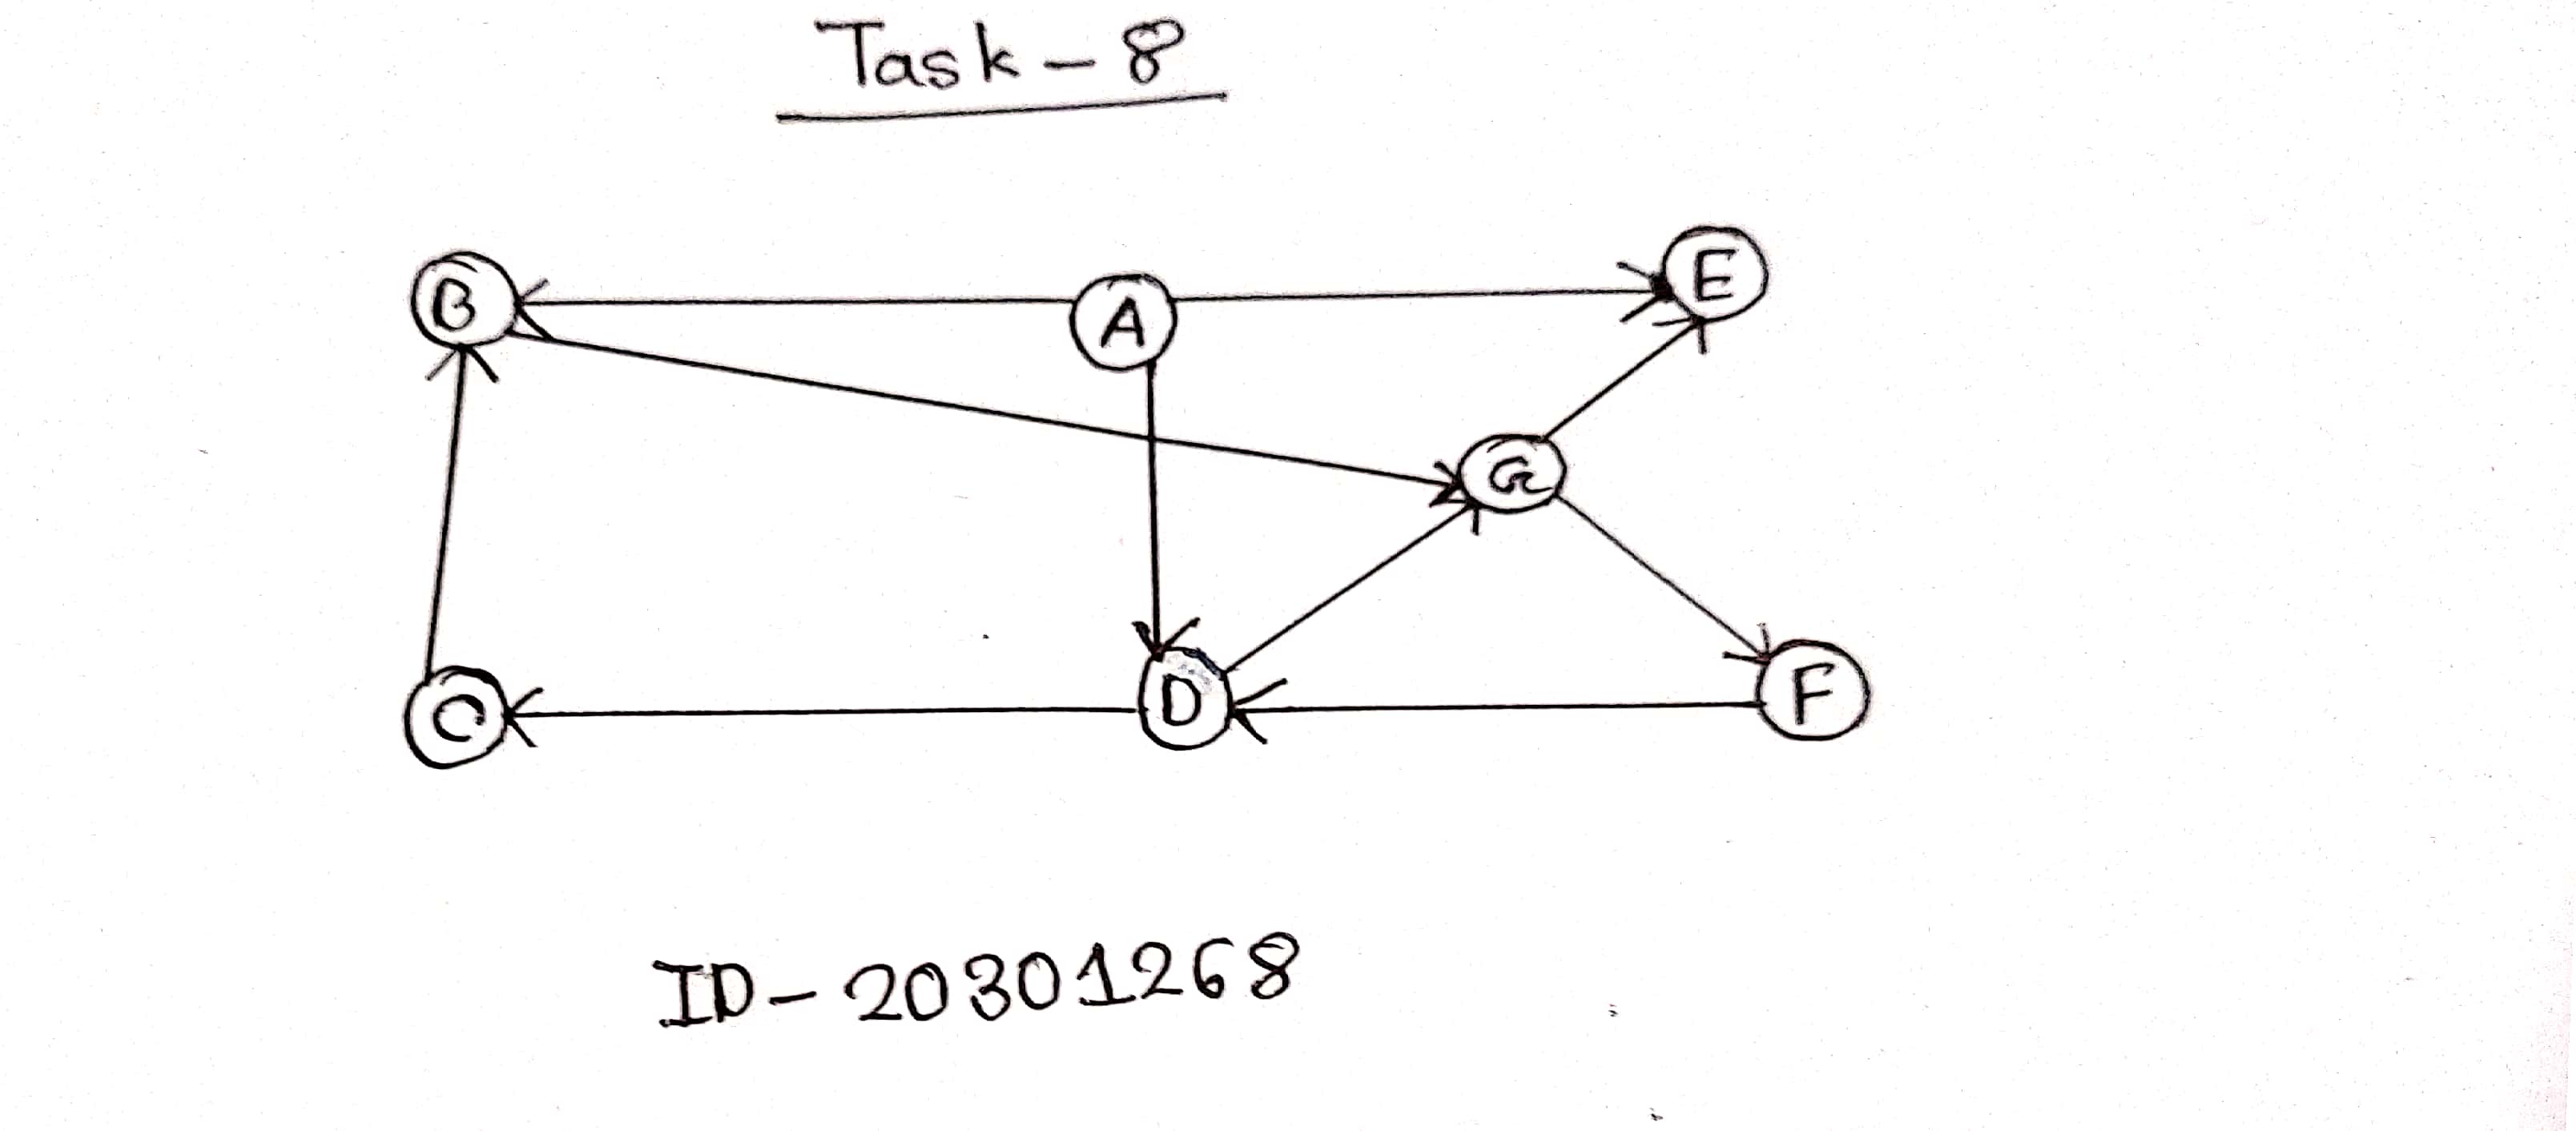 Task - 8
E
B
A
G
D
F
C
ID - 20301268